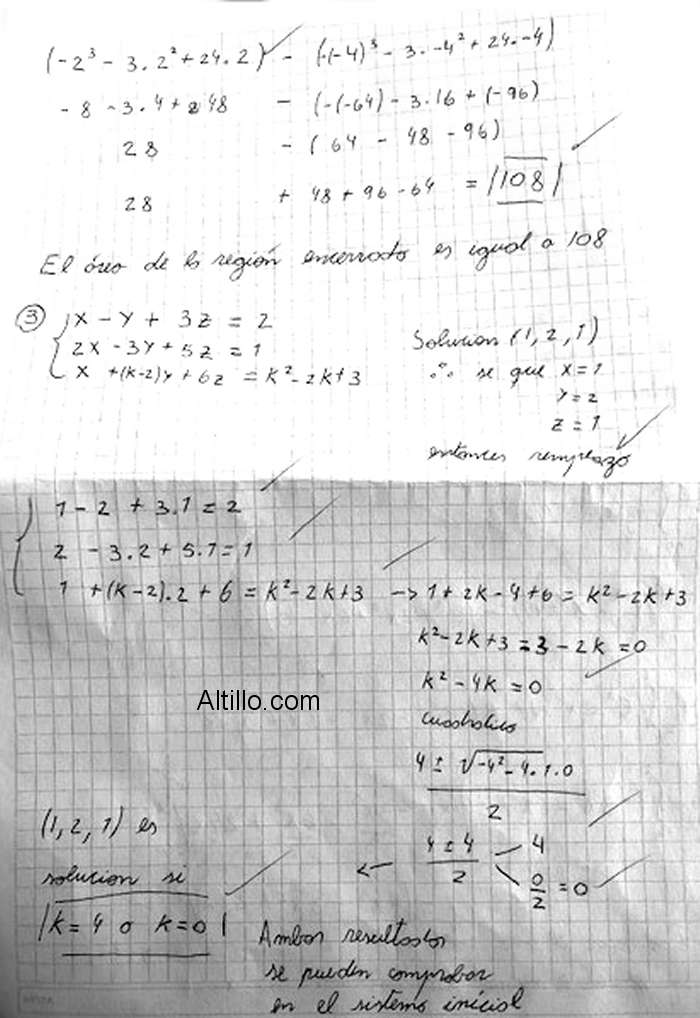 (-2³ - 3.2² + 24.2) - (-(-4)³ - 3.-4² + 24.-4)
-8 - 3.4 + 48 - (-(-64) - 3.16 + (-96)
28 - (64 - 48 - 96)
28 + 48 + 96 - 64 = |108|
El área de la región encerrada es igual a 108
③ x - y + 3z = 2
2x - 3y + 5z = 1
x + (k-2)y + 6z = k² - 2k + 3
Solucion (1, 2, 1)
∴ se que x = 1
y = 2
z = 1
entonces remplazo
1 - 2 + 3.1 = 2
2 - 3.2 + 5.1 = 1
1 + (k-2).2 + 6 = k² - 2k + 3 -> 1 + 2k - 4 + 6 = k² - 2k + 3
k² - 2k + 3 = 3 - 2k = 0
k² - 4k = 0
Altillo.com
cuadratica
4 ± √-4² - 4.1.0
2
4 ± 4
2
4
0/2 = 0
(1, 2, 1) es
solucion si
|k = 4 o k = 0|
Ambos resultados
se pueden comprobar
en el sistema inicial